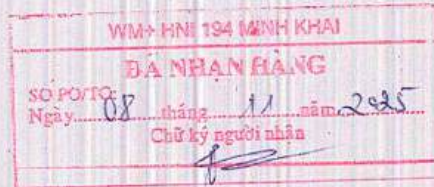 WM+ HNI 194 MINH KHAI
ĐÃ NHẬN HÀNG
SỐ PO/TO:
Ngày.....08.....tháng.....11.....năm..2025
Chữ ký người nhận